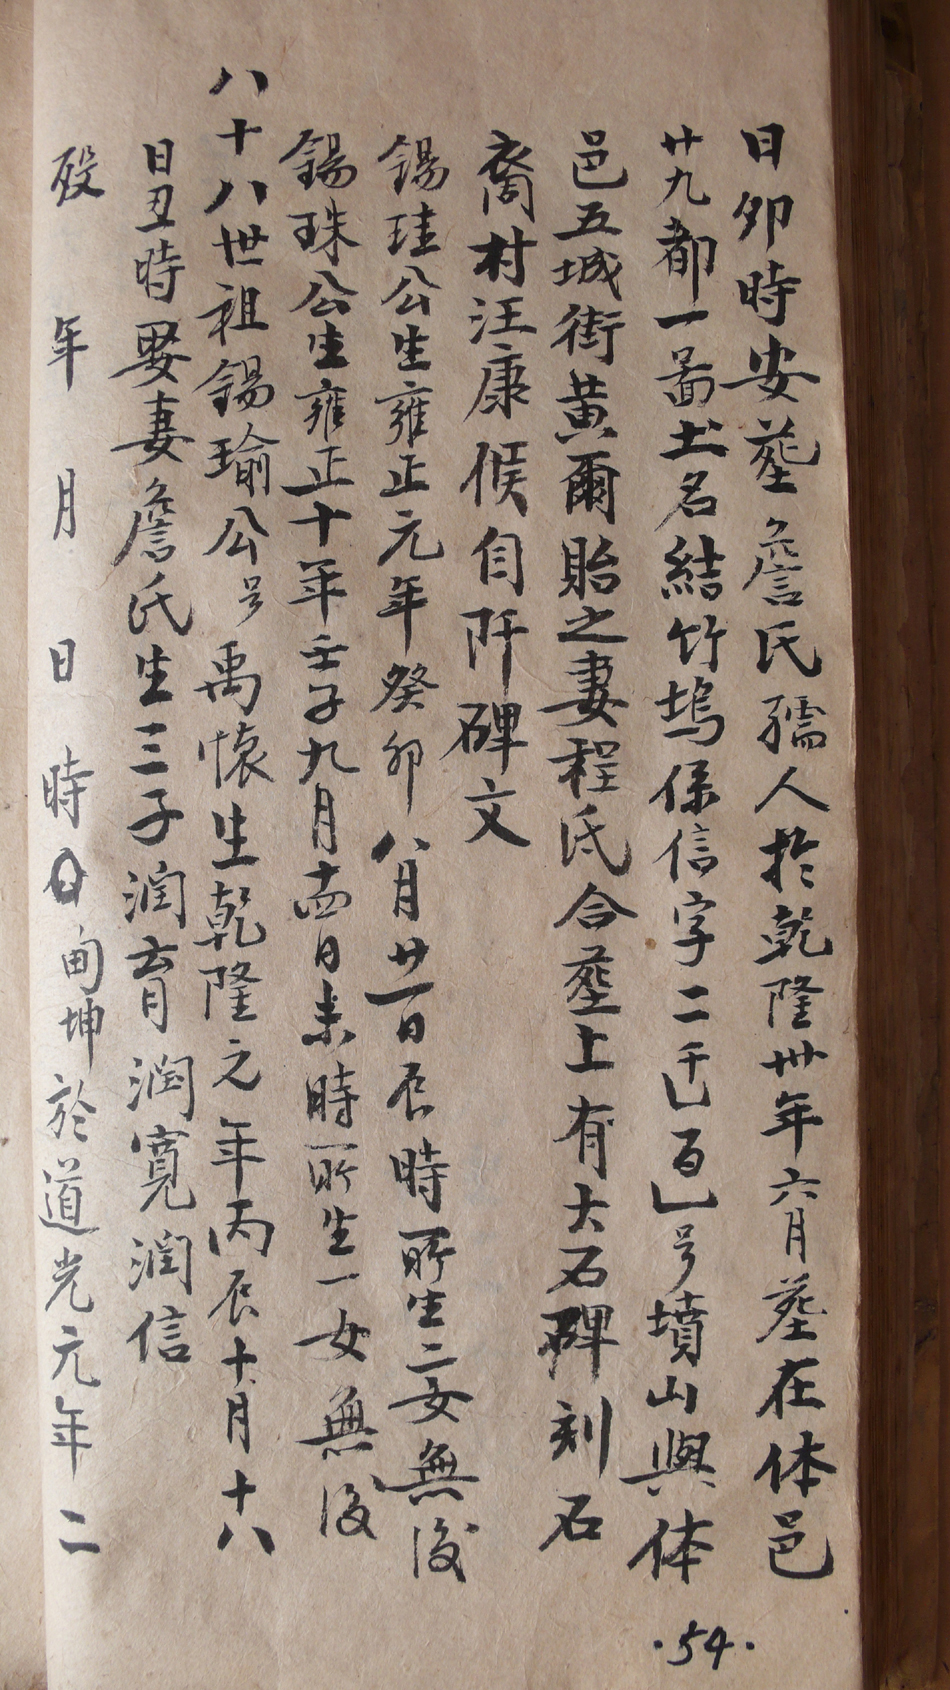 日卯時安葬詹氏孺人扵乾隆卅年六月葬在体邑
廿九都一啚土名結竹塢係信字二千百号墳山與体
邑五城街黃爾貽之妻程氏合葬上有大石碑刻石
裔村汪康候自阡碑文
錫珪公生雍正元年癸卯八月廿一日辰時所生二女無後
錫珠公生雍正十年壬子九月十四日未時所生一女無後
八十八世祖錫瑜公号禹懷生乾隆元年丙辰十月十八
日丑時娶妻詹氏生三子潤育潤寬潤信
殁年月日時甸坤於道光元年二
·54·